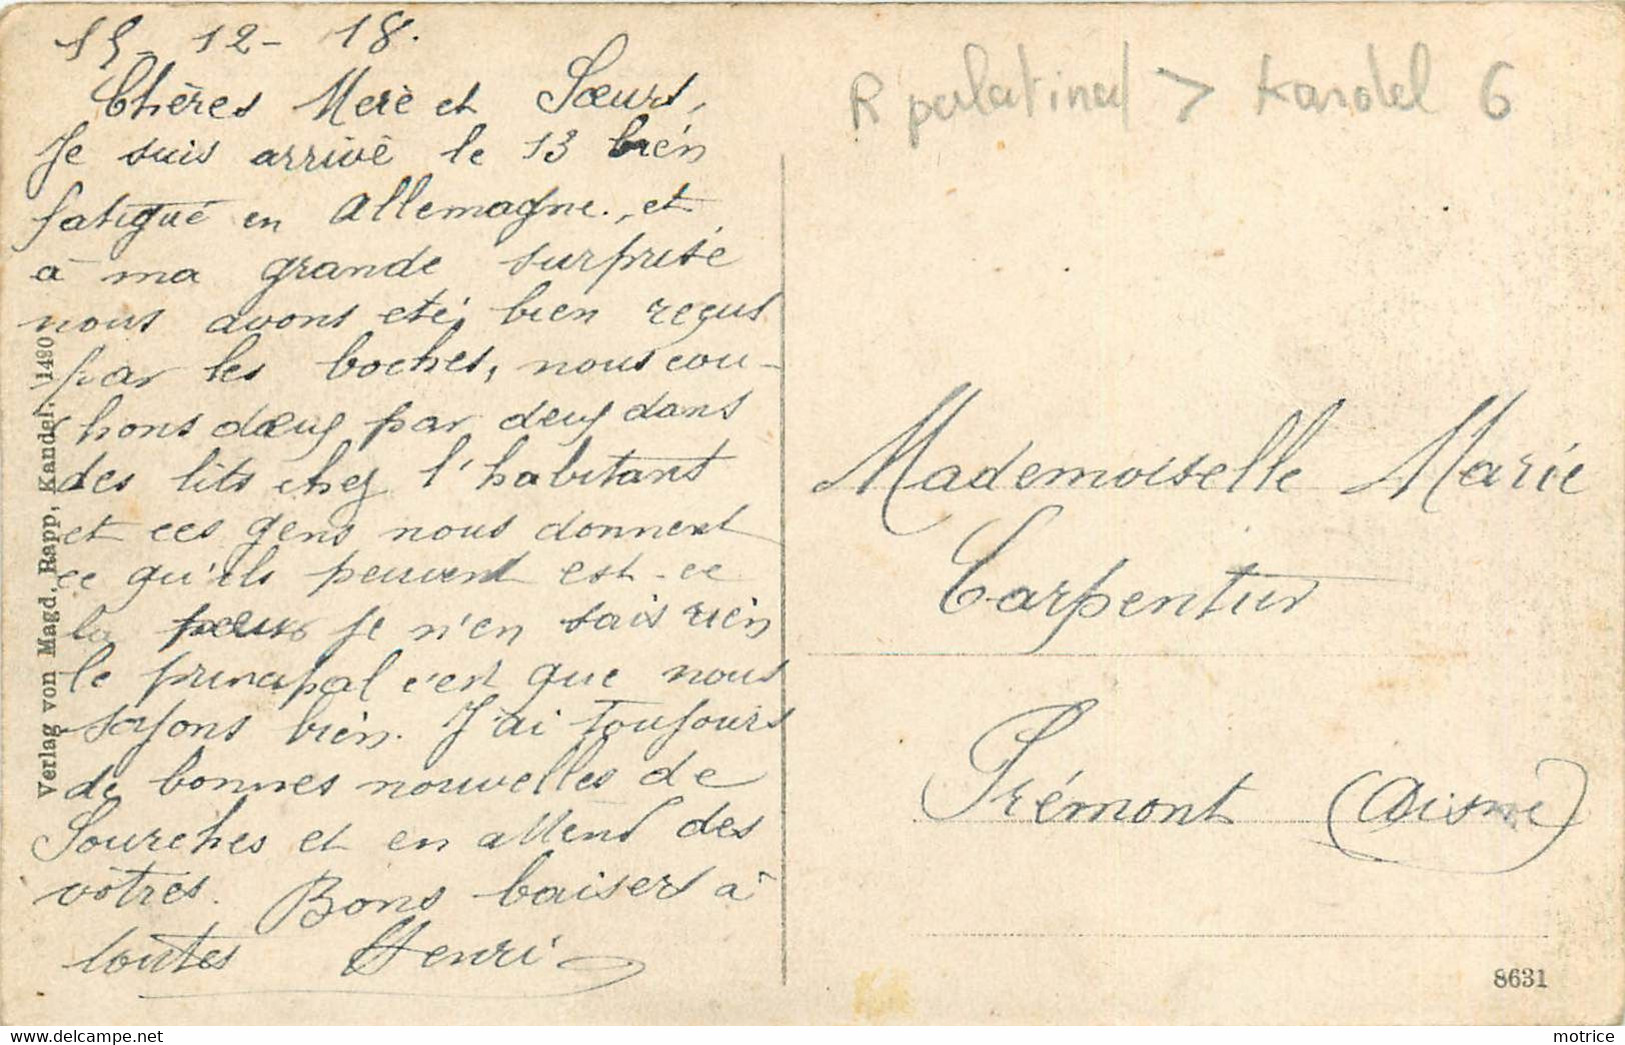 15-12-18.
Chères Merè et Sœurs,
Je suis arrivé le 13 bien
fatigué en Allemagne., et
à ma grande surprise
nous avons eté bien reçus
par les boches, nous cou-
chons dœux par deux dans
des lits chez l'habitant
et ces gens nous donnent
ce qu'ils peuvent est-ce
la pœur je n'en sais rien
le principal c'est que nous
soyons bien. J'ai toujours
de bonnes nouvelles de
Sourches et en attend des
vôtres. Bons baisers à
toutes Henri
Verlag von Magd. Rapp, Kandel. 1490
R palatinat > Kandel 6
Mademoiselle Marie
Carpentier
Prémont (Aisne)
8631
motrice